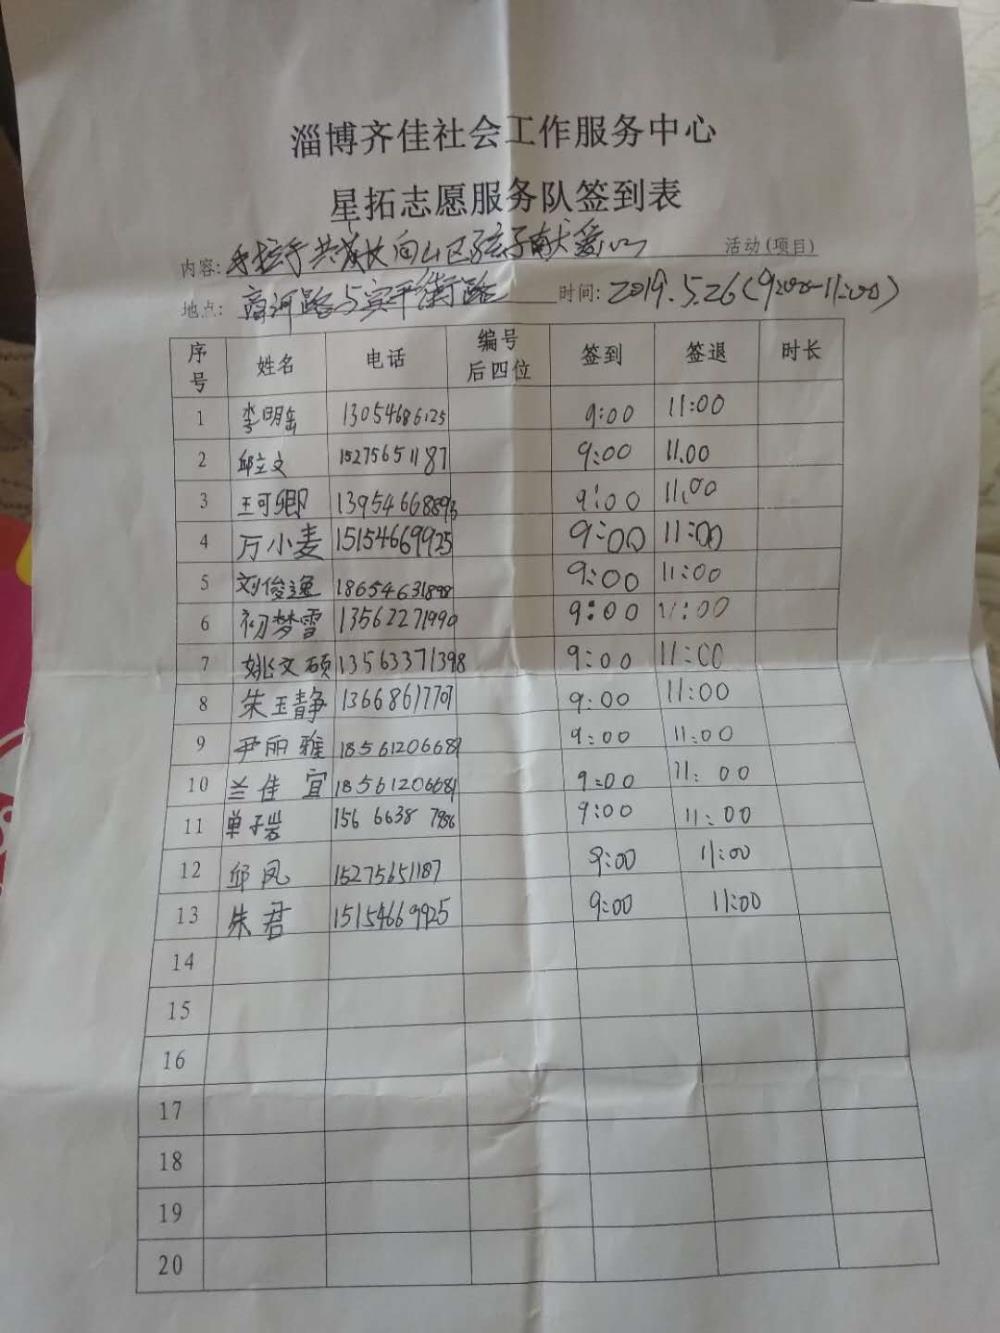 淄博齐佳社会工作服务中心
星拓志愿服务队签到表
内容: 手拉手共成长向山区孩子献爱心 活动(项目)
地点: 商河路与 路 时间: 2019.5.26(9:00-11:00)
序号 姓名 电话 编号后四位 签到 签退 时长
1 李明岳 13054686125 9:00 11:00
2 邱立文 15275651187 9:00 11.00
3 王可卿 9:00 11.00
4 万小麦 15154669925 9:00 11:00
5 刘俊逸 9:00 11:00
6 初梦雪 13562271990 9:00 11:00
7 姚文硕 13563371398 9:00 11:00
8 朱玉静 9:00 11:00
9 尹丽雅 18561206681 9:00 11:00
10 兰佳宜 18561206681 9:00 11:00
11 单子岩 156 6638 7986 9:00 11:00
12 邱凤 15275651187 9:00 11:00
13 朱君 15154669925 9:00 11:00
14
15
16
17
18
19
20